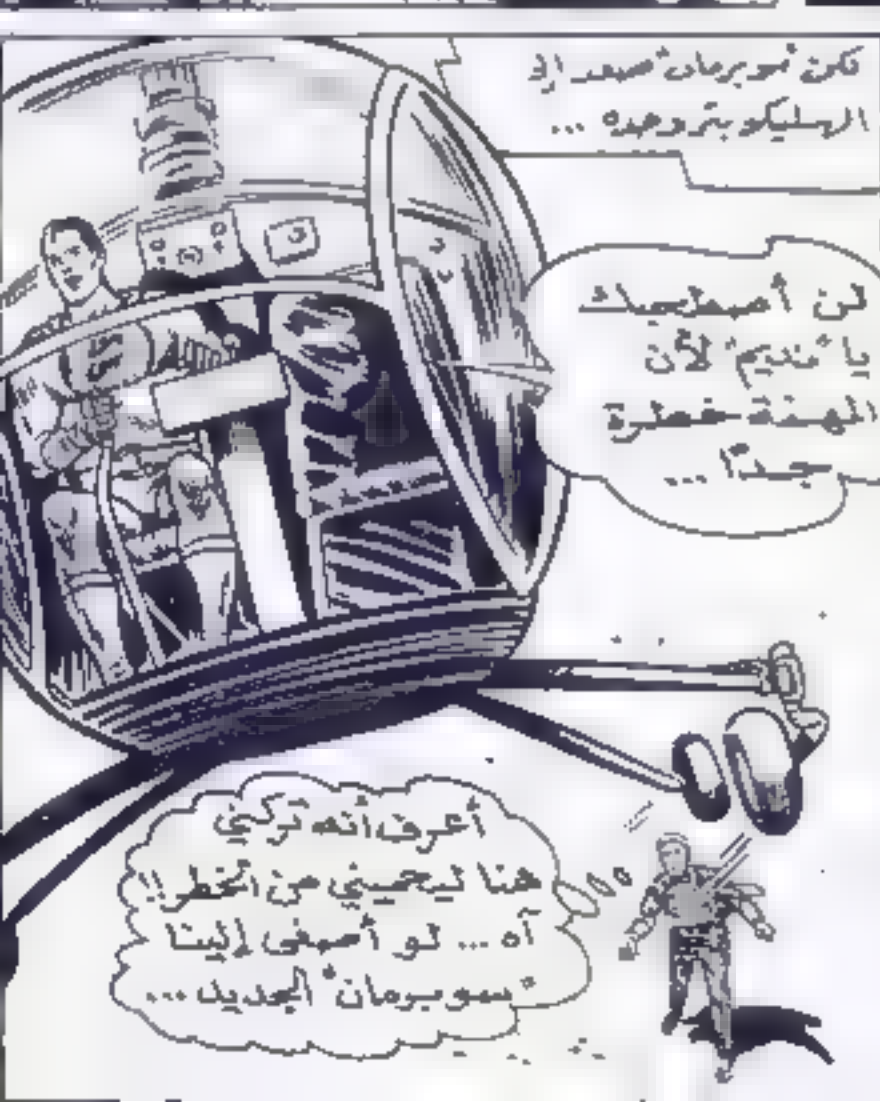 لكن "سوبرمان" صعد إلى
الهليكوبتر وحده ...
لن أصطحبك
يا "نديم" لأن
المهمة خطرة
جدًا ...
أعرف أنه تركني
هنا ليحميني من الخطر!!
آه ... لو أصغى إلينا
"سوبرمان" الجديد ...